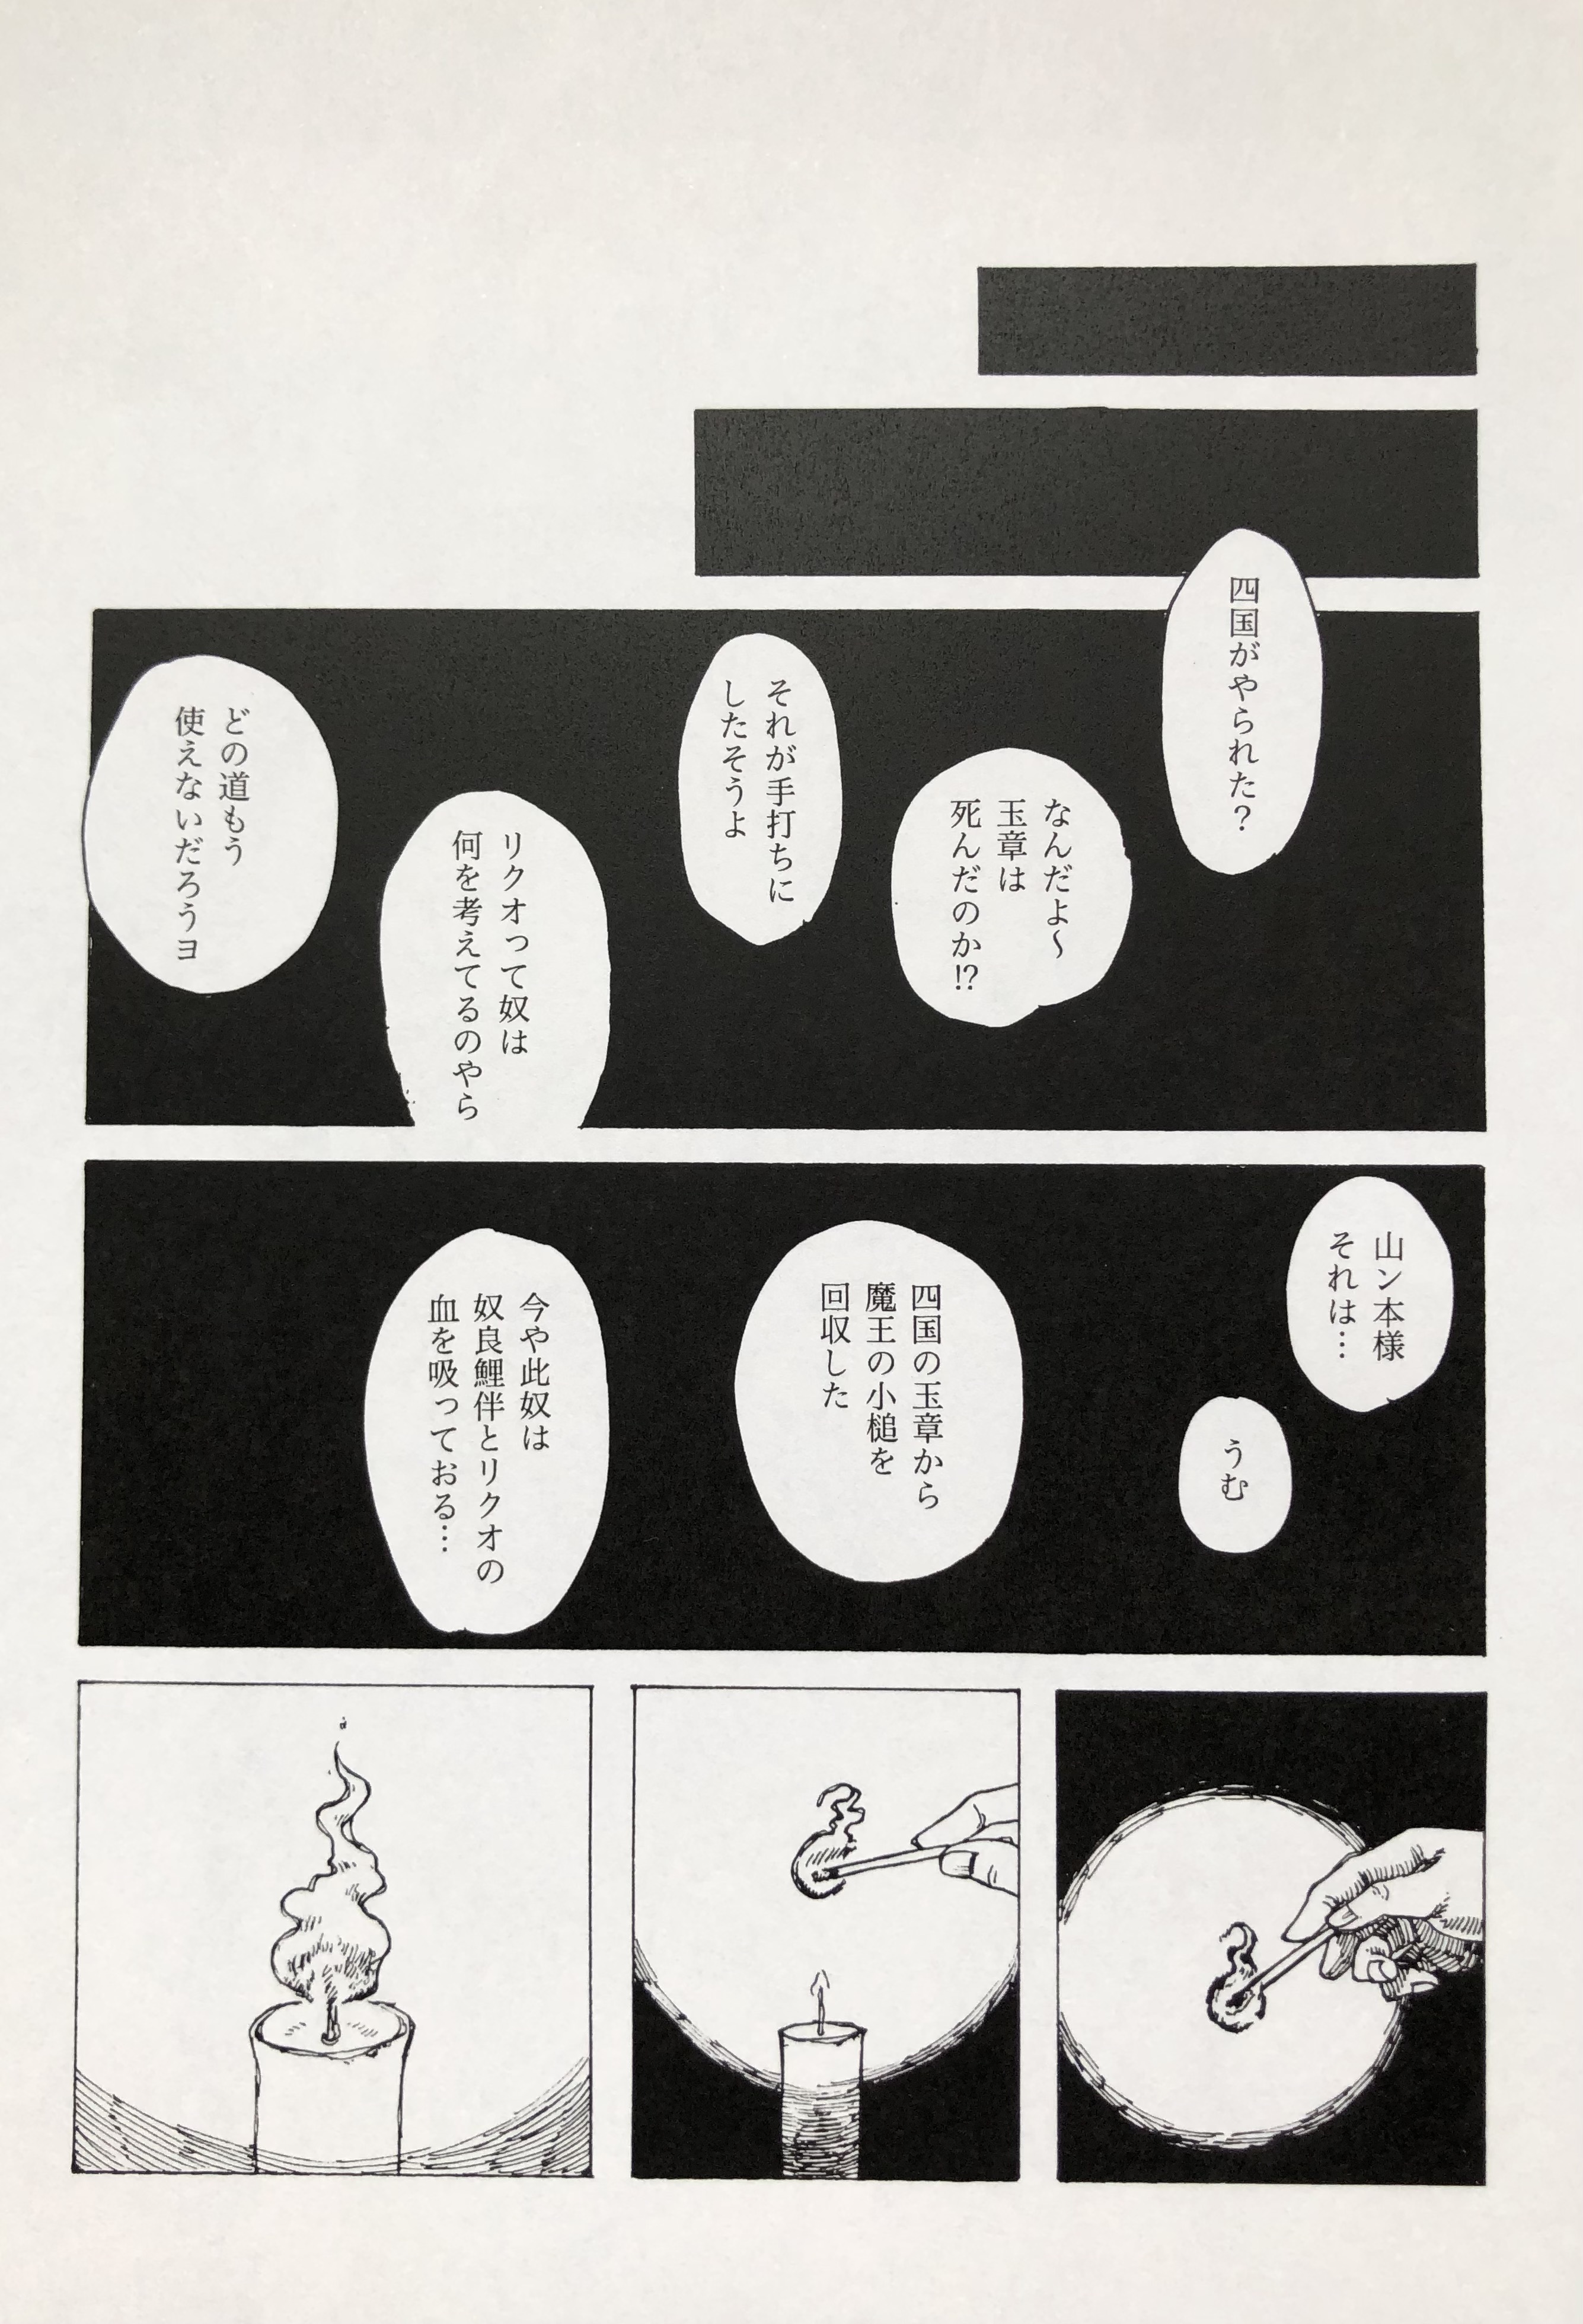 四国がやられた？
なんだよ〜
玉章は
死んだのか!?
それが手打ちに
したそうよ
リクオって奴は
何を考えてるのやら
どの道もう
使えないだろうヨ
山ン本様
それは…
うむ
四国の玉章から
魔王の小槌を
回収した
今や此奴は
奴良鯉伴とリクオの
血を吸っておる…